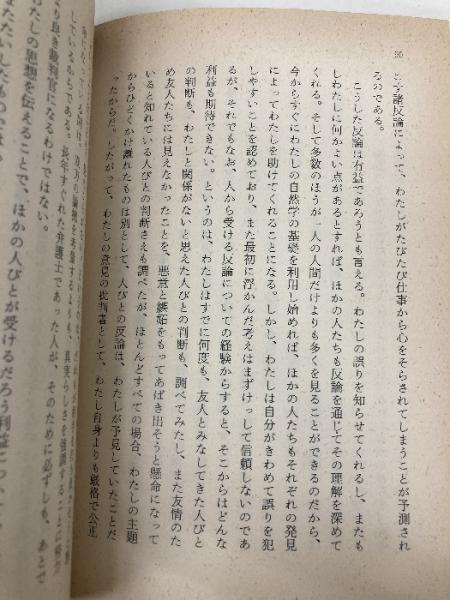 90
諸反論によって、わたしがたびたび仕事から心をそらされてしまうことが予測され
るのである。
こうした反論は有益であろうとも言える。わたしの誤りを知らせてくれるし、またも
しわたしに何かよい点があるとすれば、ほかの人たちも反論を通じてその理解を深めて
くれる。そして多数のほうが一人の人間だけよりも多くを見ることができるのだから、
今からすぐにわたしの自然学の基礎を利用し始めれば、ほかの人たちもそれぞれの発見
によってわたしを助けてくれることになる。しかし、わたしは自分がきわめて誤りを犯
しやすいことを認めており、また最初に浮かんだ考えはまずけっして信頼しないのであ
るが、それでもなお、人から受ける反論についての経験からすると、そこからはどんな
利益も期待できない。というのは、わたしはすでに何度も、友人とみなしてきた人びと
の判断も、わたしと関係がないと思えた人びとの判断も、調べてみたし、また友情のた
め友人たちには見えなかったことを、悪意と嫉妬をもってあばき出そうと懸命になって
いると知れている人びとの判断さえも調べたが、ほとんどすべての場合、わたしの主題
からひどくかけ離れたものは別として、人びとの反論は、わたしが予見していたことだ
ったからだ。したがって、わたしの意見の批判者として、わたし自身よりも厳格で公正
双方の論拠を考量するよりも、真実らしさを強調することに
しているからである。長年すぐれた弁護士であった人が、そのために必ずしも、あとで
より良き裁判官になるわけではない。
わたしの思想を伝えることで、ほかの人びとが受けるだろう利益に